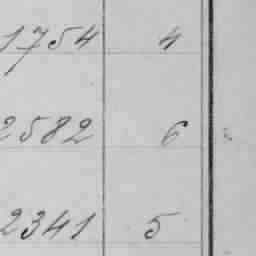 1754 4
2582 6
2341 5